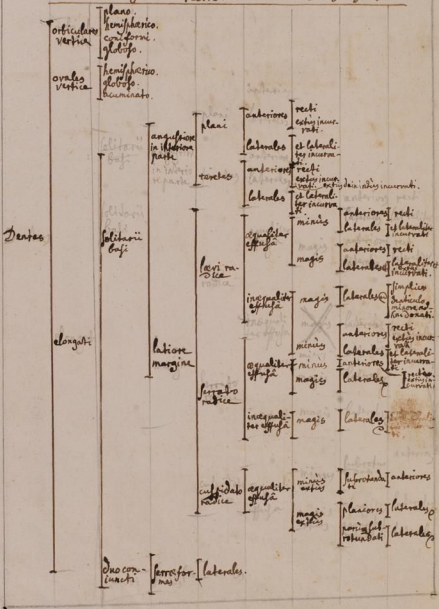 orbiculares
vertice
plano.
hemisphærico.
coniformi.
globoso.
ovales
vertice
hemisphærico.
globoso.
acuminato.
Dentes
elongati
solitarii
basi
angustiore
in interiore
parte
plani
anteriores
recti
extus incur-
vati.
laterales
et laterali-
ter incurva-
ti.
teretes
anteriores
recti
extus incur-
vati.
laterales
et laterali-
ter incurva-
ti.
latiore
margine
lævi ra-
dice
æqualiter
effusâ
minùs
anteriores
recti
laterales
et lateraliter
incurvati.
magis
anteriores
recti
laterales
lateraliter
incurvati.
inæqualiter
effusâ
magis
laterales
simplici
donati.
serrato
radice
æqualiter
effusâ
minùs
anteriores
recti
extus incur-
vati
laterales
et laterali-
ter incurva-
ti.
minus
anteriores
magis
laterales
inæquali-
ter effusâ
magis
laterales
cuspidato
radice
æqualiter
effusâ
minùs
extus
subrotunda-
ti
anteriores
magis
extus
planiores
laterales
parùm sub-
rotundati
laterales
duo con-
iuncti
serræfor-
mes
laterales.